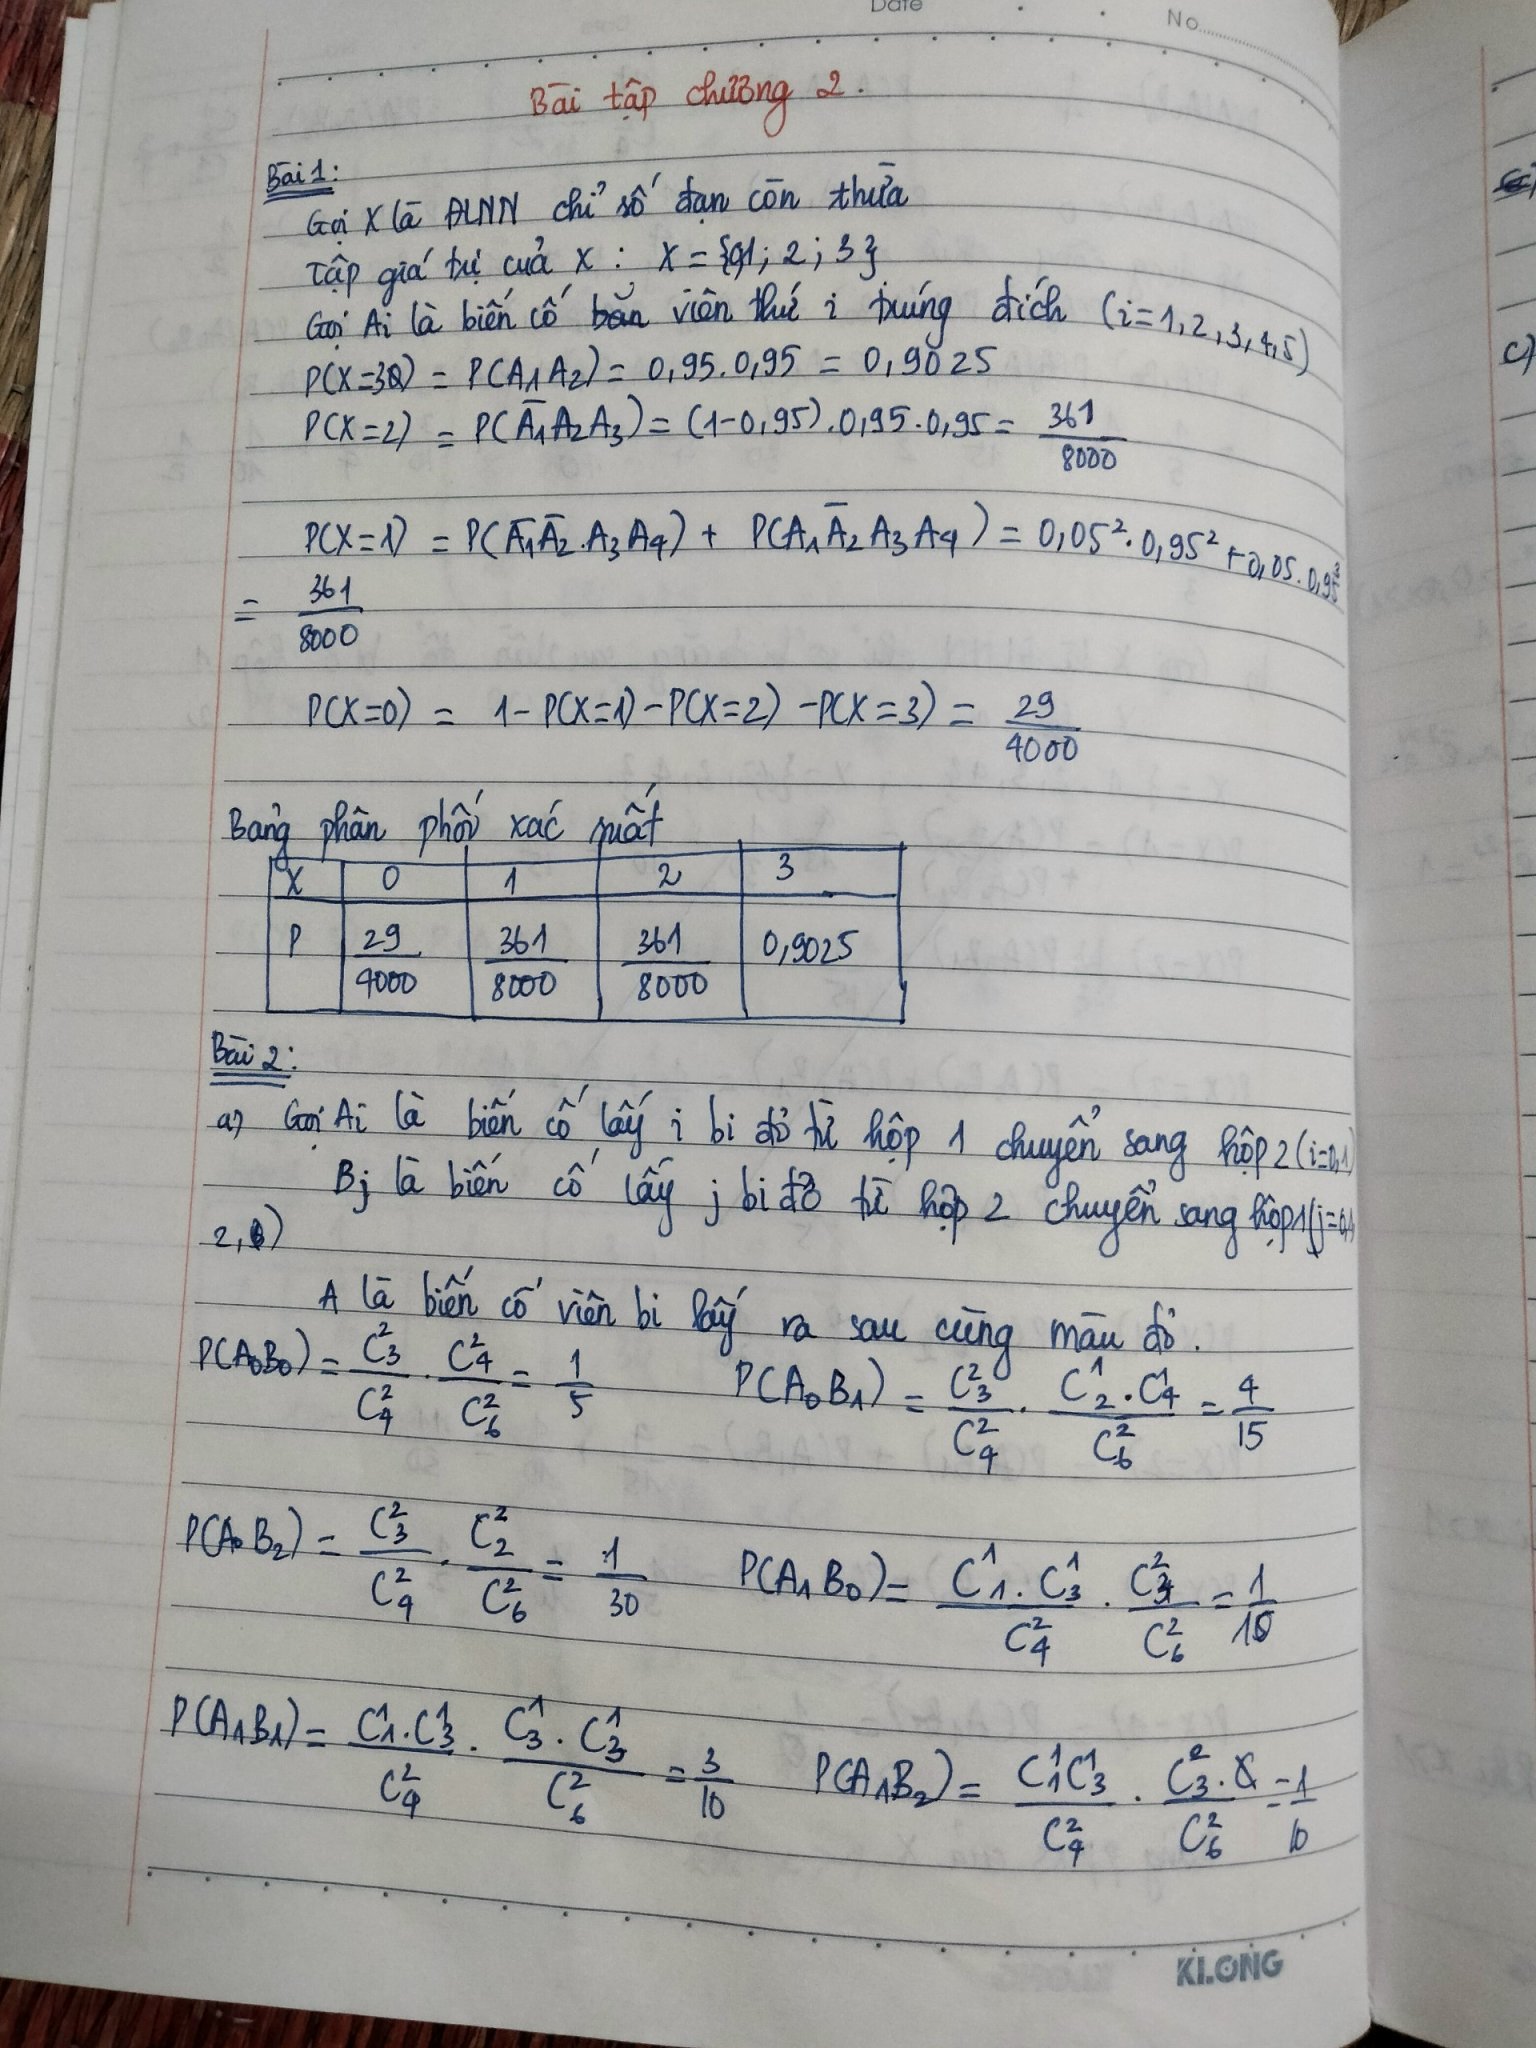 Date
No
Bài tập chương 2.
Bài 1:
Gọi X là ĐLNN chỉ số đạn còn thừa
Tập giá trị của X : X = {0,1; 2 ; 3}
Gọi Ai là biến cố bắn viên thứ i trúng đích (i=1,2,3,4,5)
P(X=3) = P(A₁A₂) = 0,95.0,95 = 0,9025
P(X=2) = P(Ā₁A₂A₃) = (1-0,95).0,95.0,95 = 361/8000
P(X=1) = P(Ā₁Ā₂.A₃A₄) + P(A₁Ā₂A₃A₄) = 0,05².0,95² + 0,05.0,95³
= 361/8000
P(X=0) = 1-P(X=1)-P(X=2)-P(X=3) = 29/4000
Bảng phân phối xác suất
X 0 1 2 3
P 29/4000 361/8000 361/8000 0,9025
Bài 2:
a) Gọi Ai là biến cố lấy i bi đỏ từ hộp 1 chuyển sang hộp 2 (i=0,1)
Bj là biến cố lấy j bi đỏ từ hộp 2 chuyển sang hộp 1 (j=0,1
2, )
A là biến cố viên bi lấy ra sau cùng màu đỏ.
P(A₀B₀) = C²₃/C²₄ . C²₄/C²₆ = 1/5 P(A₀B₁) = C²₃/C²₄ . C¹₂.C¹₄/C²₆ = 4/15
P(A₀B₂) = C²₃/C²₄ . C²₂/C²₆ = 1/30 P(A₁B₀) = C¹₁.C¹₃/C²₄ . C²₃/C²₆ = 1/10
P(A₁B₁) = C¹₁.C¹₃/C²₄ . C¹₃.C¹₃/C²₆ = 3/10 P(A₁B₂) = C¹₁C¹₃/C²₄ . C²₃/C²₆ = 1/10
KLONG